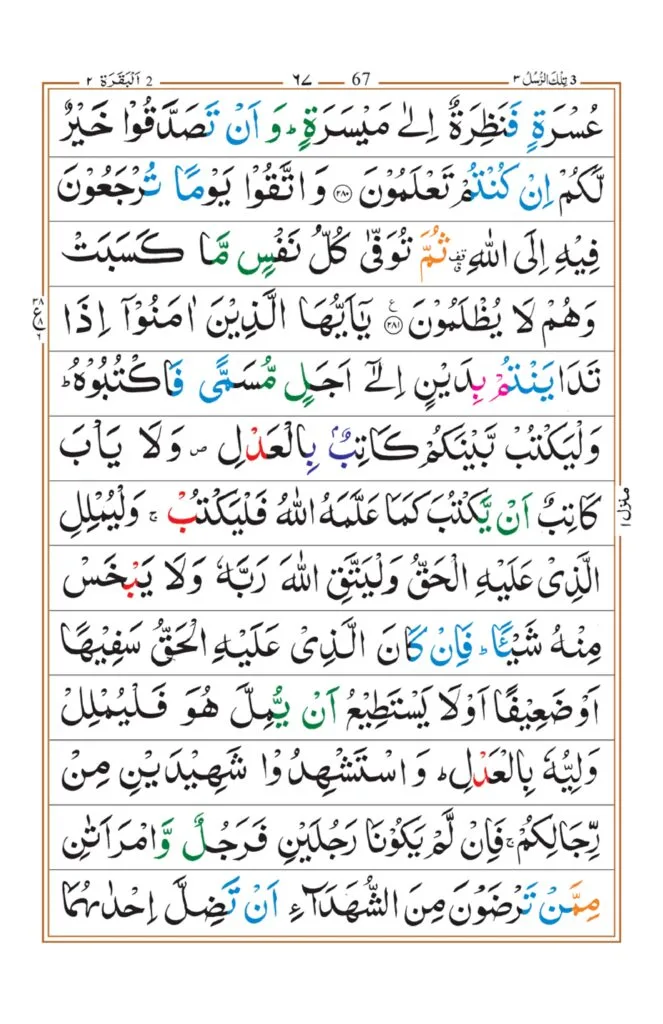 3 تِلْكَ الرُّسُلُ ٣ 67 ٦٧ 2 اَلْبَقَرَة ٢
عُسْرَةٍ فَنَظِرَةٌ اِلٰى مَيْسَرَةٍ ؕ وَ اَنْ تَصَدَّقُوْا خَيْرٌ
لَّكُمْ اِنْ كُنْتُمْ تَعْلَمُوْنَ ﴿۲۸۰﴾ وَ اتَّقُوْا يَوْمًا تُرْجَعُوْنَ
فِيْهِ اِلَى اللّٰهِ ثُمَّ تُوَفّٰى كُلُّ نَفْسٍ مَّا كَسَبَتْ
وَهُمْ لَا يُظْلَمُوْنَ ﴿۲۸۱﴾ ع يٰۤاَيُّهَا الَّذِيْنَ اٰمَنُوْۤا اِذَا
تَدَايَنْتُمْ بِدَيْنٍ اِلٰٓى اَجَلٍ مُّسَمًّى فَاكْتُبُوْهُ ؕ
وَلْيَكْتُبْ بَّيْنَكُمْ كَاتِبٌۢ بِالْعَدْلِ ص وَلَا يَاْبَ
كَاتِبٌ اَنْ يَّكْتُبَ كَمَا عَلَّمَهُ اللّٰهُ فَلْيَكْتُبْ ۚ وَلْيُمْلِلِ
الَّذِىْ عَلَيْهِ الْحَقُّ وَلْيَتَّقِ اللّٰهَ رَبَّهٗ وَلَا يَبْخَسْ
مِنْهُ شَيْـًٔا ؕ فَاِنْ كَانَ الَّذِىْ عَلَيْهِ الْحَقُّ سَفِيْهًا
اَوْ ضَعِيْفًا اَوْ لَا يَسْتَطِيْعُ اَنْ يُّمِلَّ هُوَ فَلْيُمْلِلْ
وَلِيُّهٗ بِالْعَدْلِ ؕ وَاسْتَشْهِدُوْا شَهِيْدَيْنِ مِنْ
رِّجَالِكُمْ ۚ فَاِنْ لَّمْ يَكُوْنَا رَجُلَيْنِ فَرَجُلٌ وَّامْرَاَتٰنِ
مِمَّنْ تَرْضَوْنَ مِنَ الشُّهَدَآءِ اَنْ تَضِلَّ اِحْدٰٮهُمَا
منزل ۱